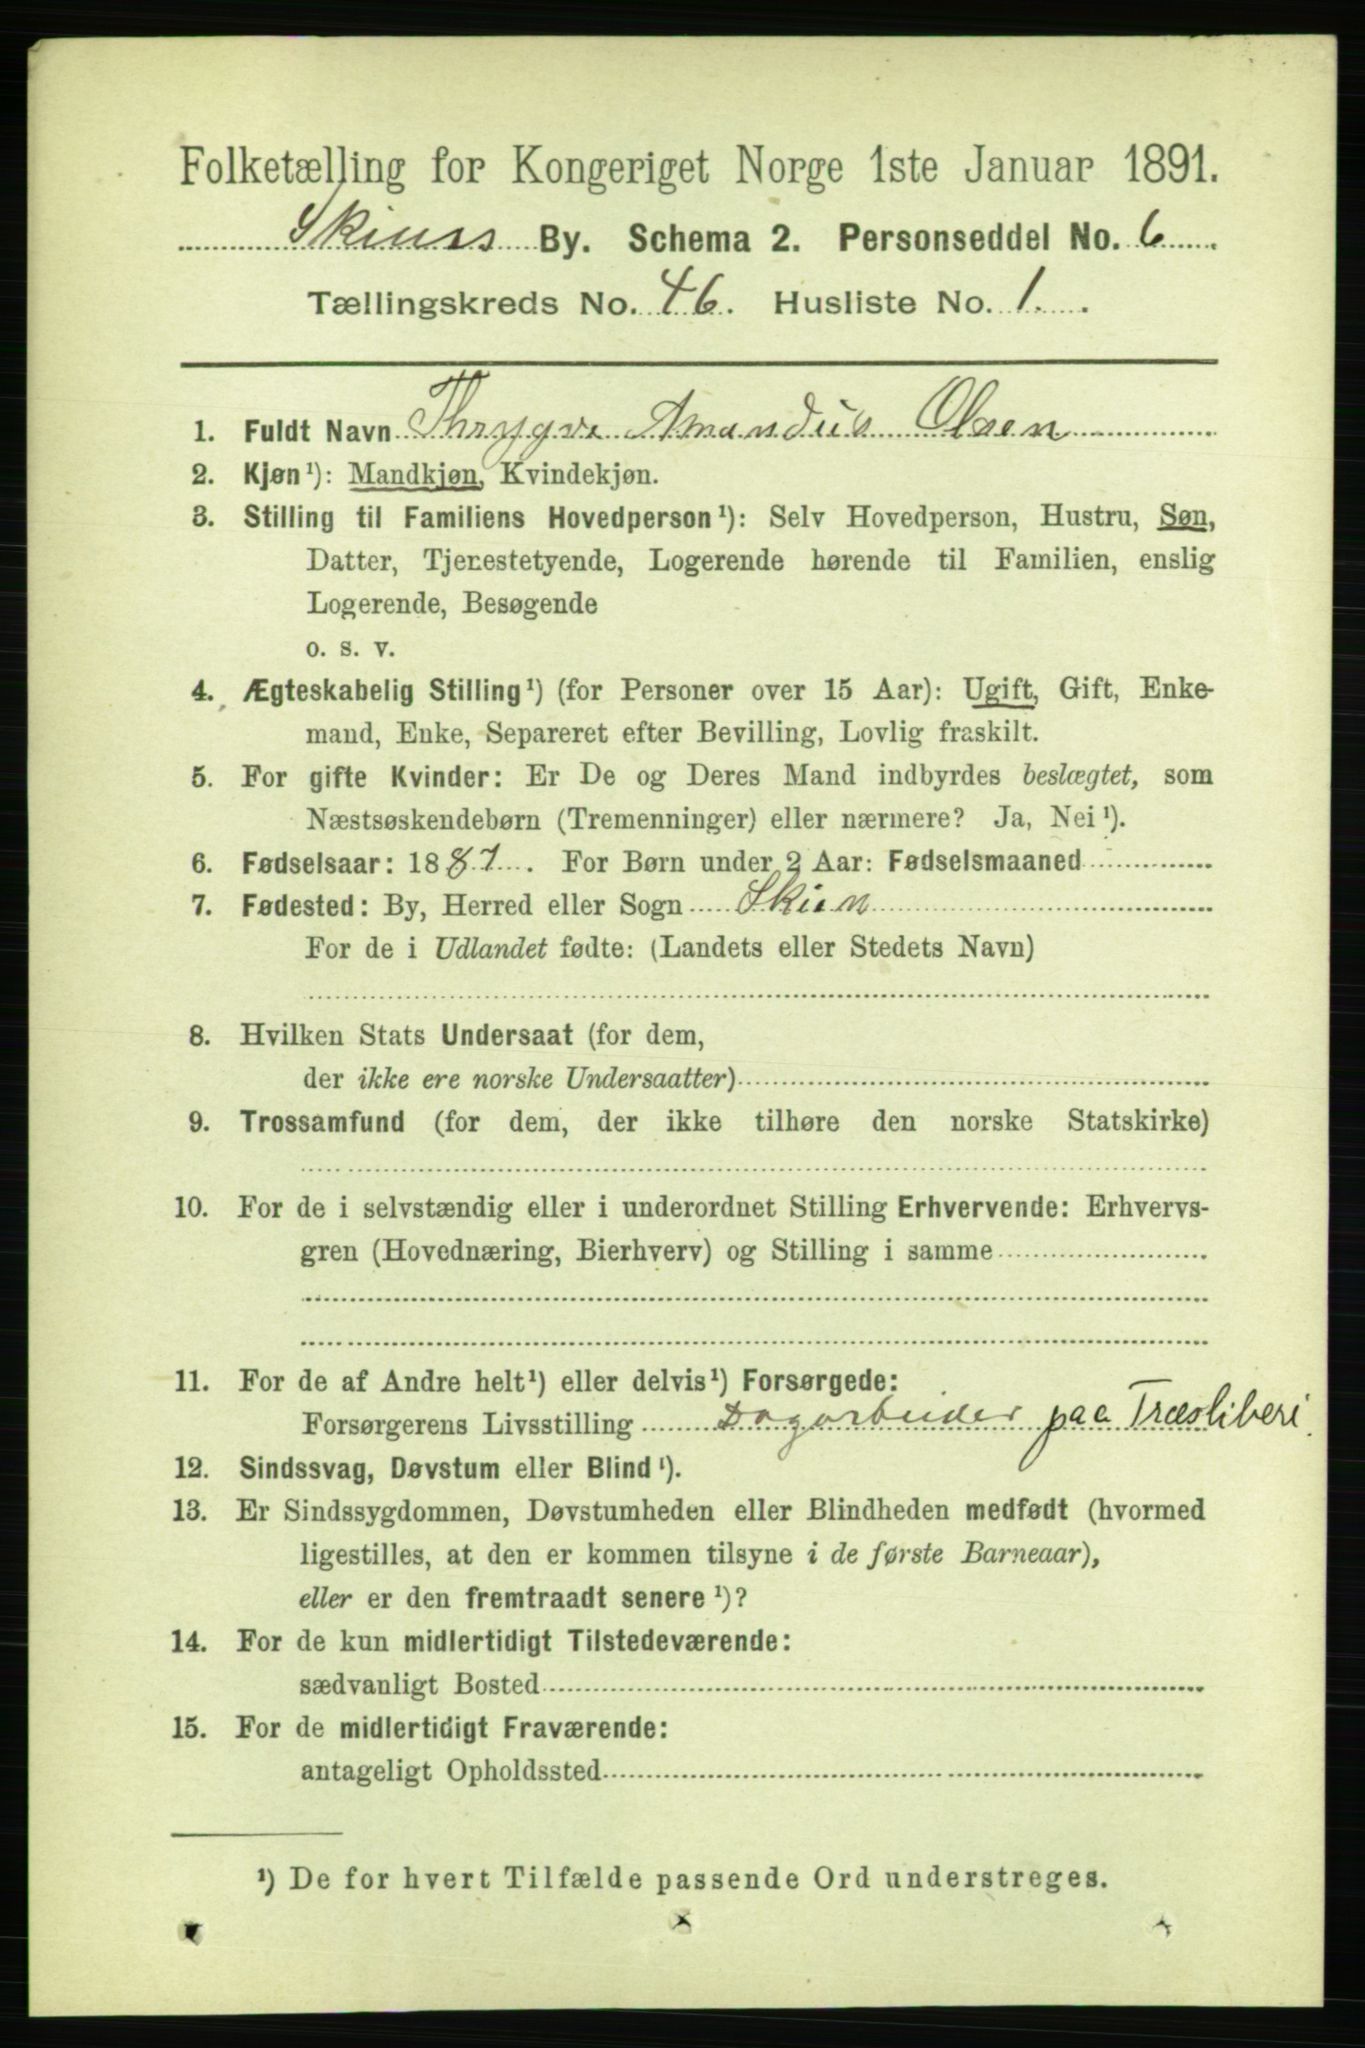 Folketælling for Kongeriget Norge 1ste Januar 1891.
Skiens By. Schema 2. Personseddel No. 6
Tællingskreds No. 46. Husliste No. 1.
1. Fuldt Navn Thrygve Amandus Olsen
2. Kjøn¹): Mandkjøn, Kvindekjøn.
3. Stilling til Familiens Hovedperson¹): Selv Hovedperson, Hustru, Søn,
Datter, Tjenestetyende, Logerende hørende til Familien, enslig
Logerende, Besøgende
o. s. v.
4. Ægteskabelig Stilling¹) (for Personer over 15 Aar): Ugift, Gift, Enke-
mand, Enke, Separeret efter Bevilling, Lovlig fraskilt.
5. For gifte Kvinder: Er De og Deres Mand indbyrdes beslægtet, som
Næstsøskendebørn (Tremenninger) eller nærmere? Ja, Nei¹).
6. Fødselsaar: 1887. For Børn under 2 Aar: Fødselsmaaned
7. Fødested: By, Herred eller Sogn Skien
For de i Udlandet fødte: (Landets eller Stedets Navn)
8. Hvilken Stats Undersaat (for dem,
der ikke ere norske Undersaatter)
9. Trossamfund (for dem, der ikke tilhøre den norske Statskirke)
10. For de i selvstændig eller i underordnet Stilling Erhvervende: Erhvervs-
gren (Hovednæring, Bierhverv) og Stilling i samme
11. For de af Andre helt¹) eller delvis¹) Forsørgede:
Forsørgerens Livsstilling Dagarbeider paa Træsliberi.
12. Sindssvag, Døvstum eller Blind¹).
13. Er Sindssygdommen, Døvstumheden eller Blindheden medfødt (hvormed
ligestilles, at den er kommen tilsyne i de første Barneaar),
eller er den fremtraadt senere¹)?
14. For de kun midlertidigt Tilstedeværende:
sædvanligt Bosted
15. For de midlertidigt Fraværende:
antageligt Opholdssted
¹) De for hvert Tilfælde passende Ord understreges.